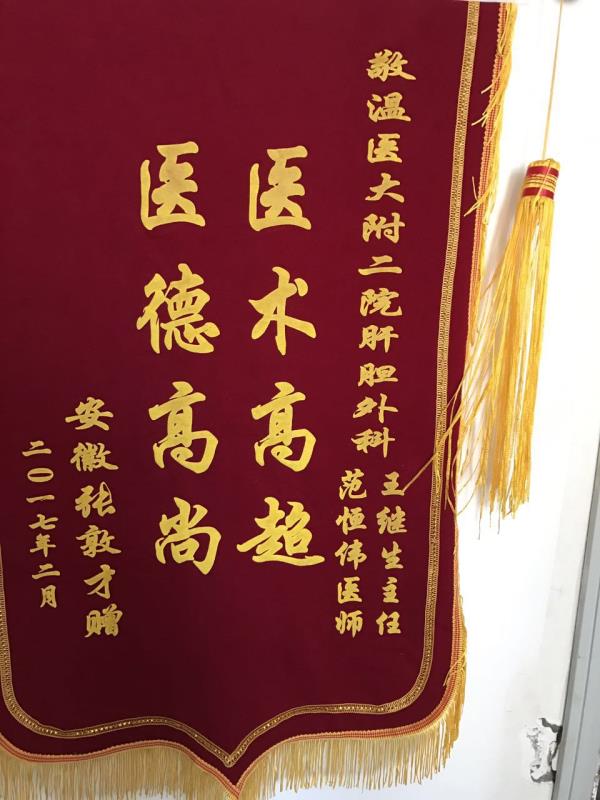 敬温医大附二院肝胆外科
王继生主任
范恒伟医师
医术高超
医德高尚
安徽张敦才赠
二〇一七年二月